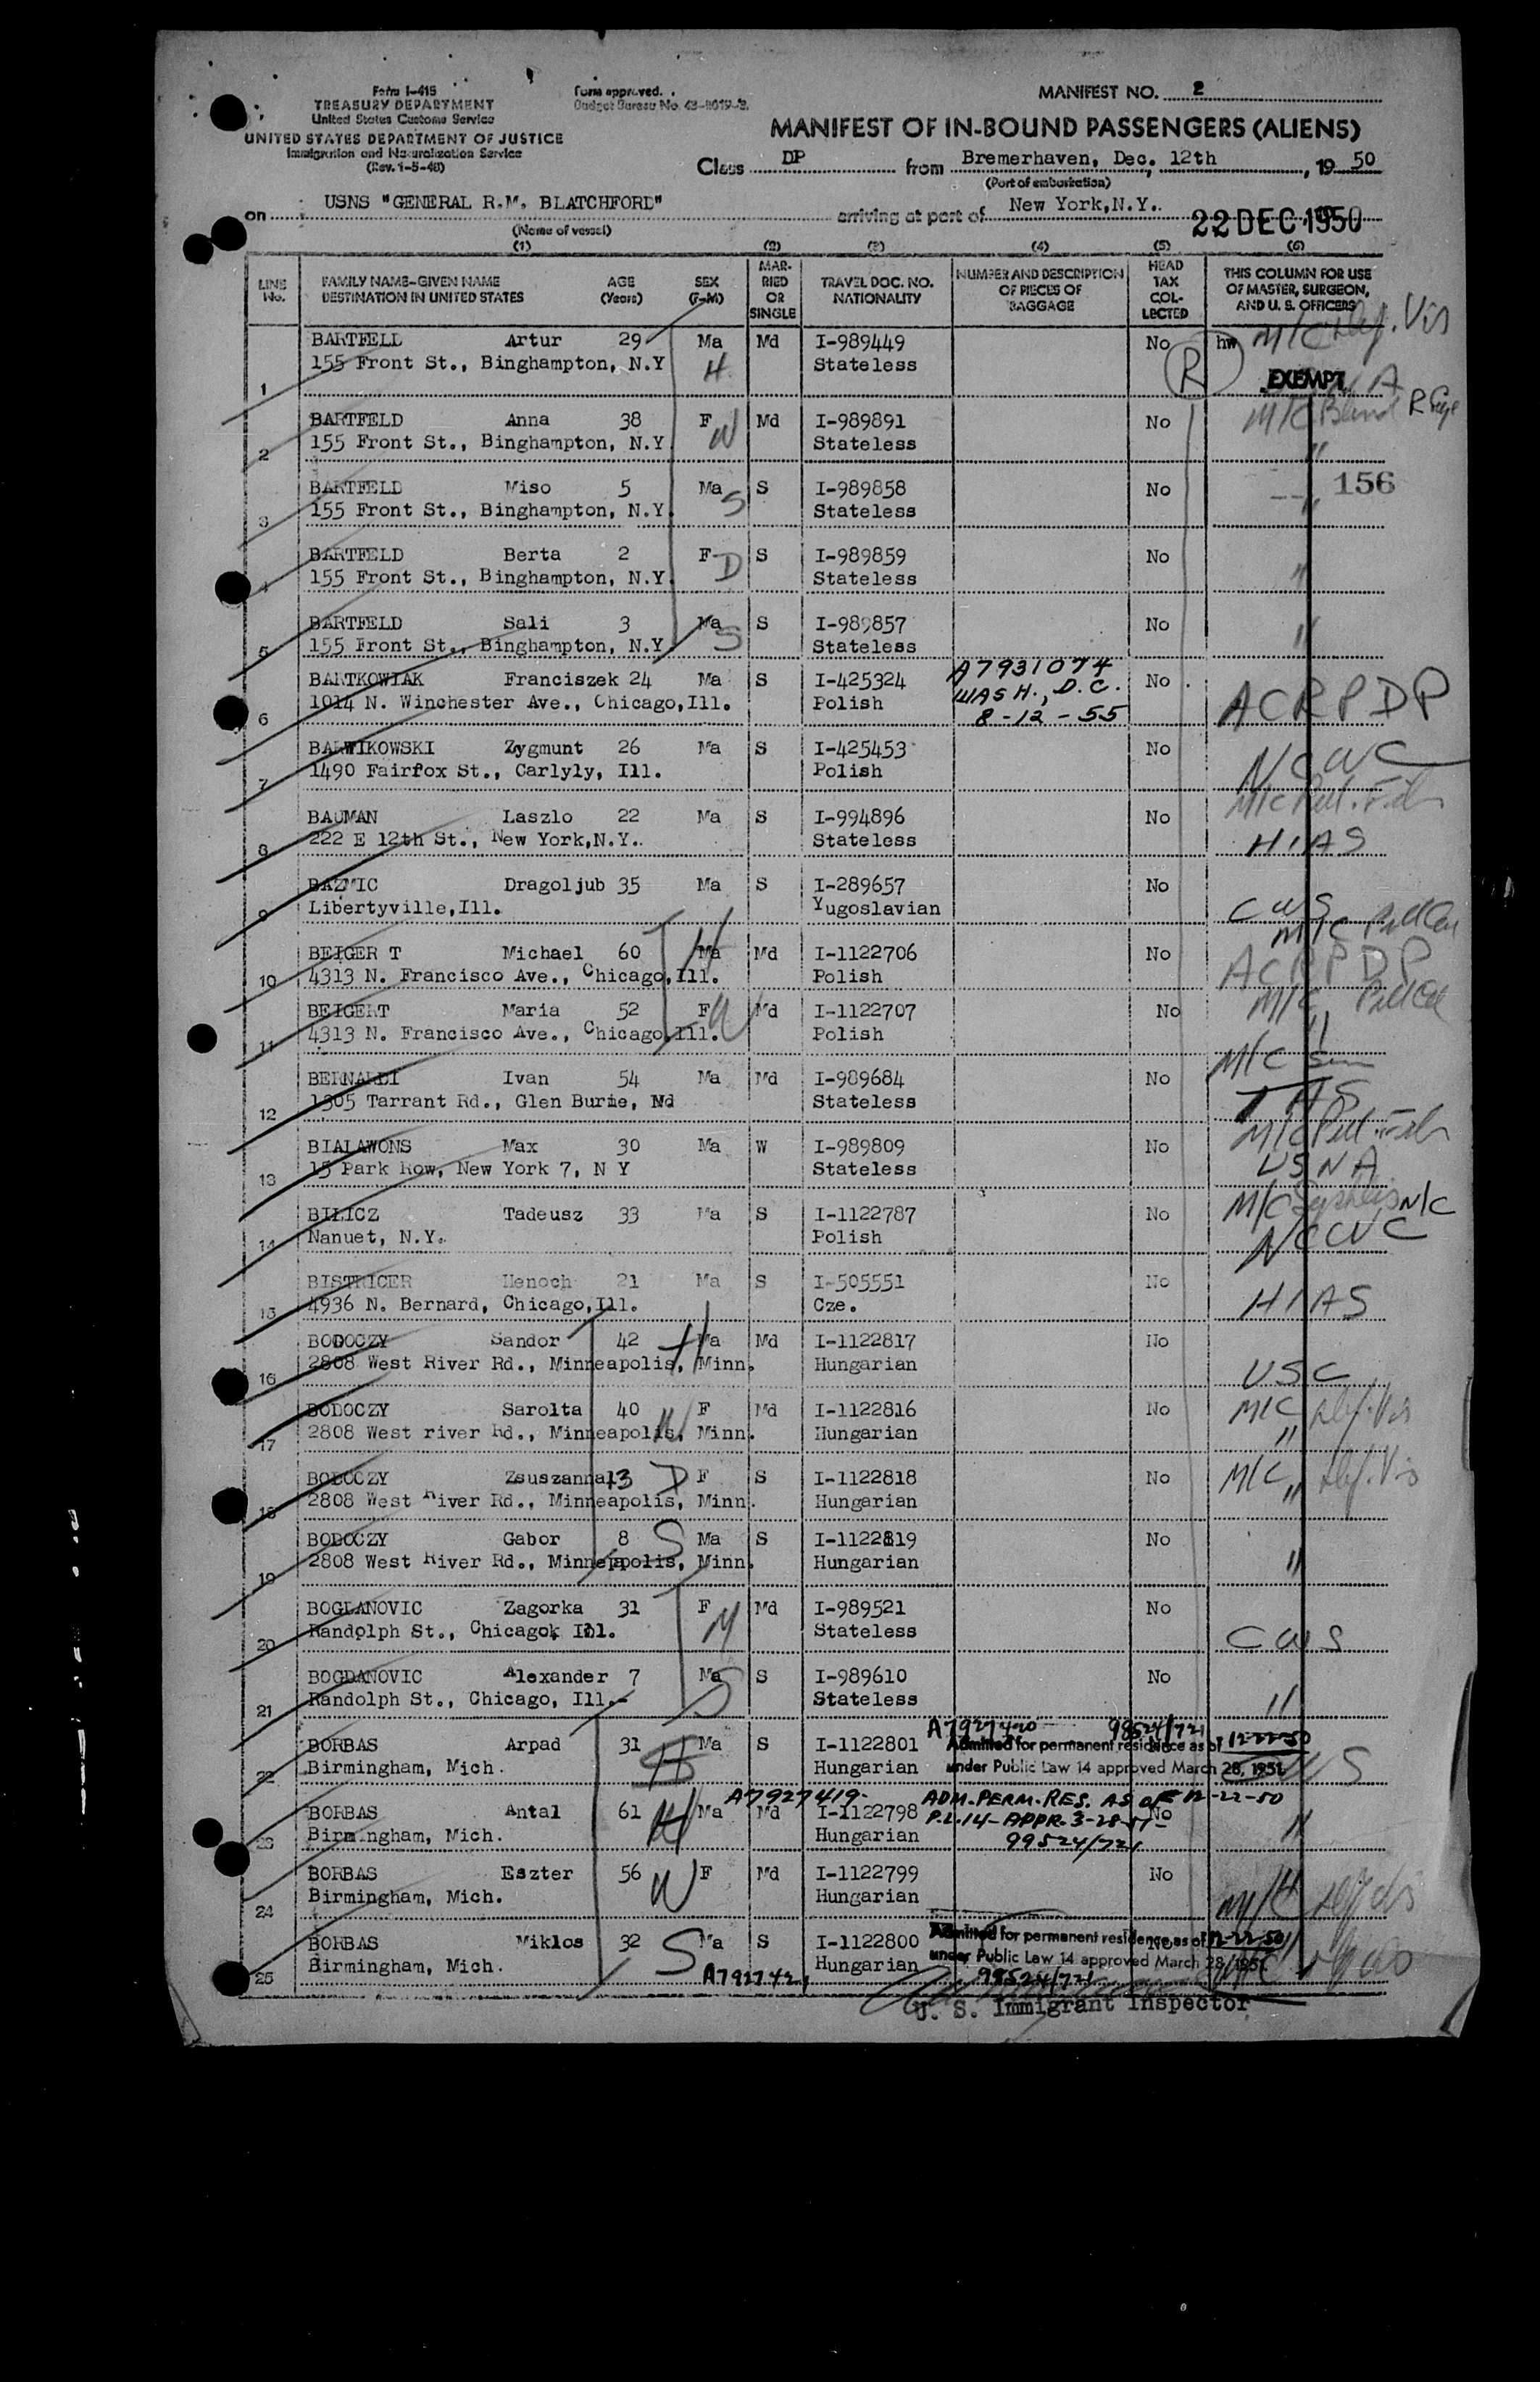 Form I-415
TREASURY DEPARTMENT
United States Customs Service
UNITED STATES DEPARTMENT OF JUSTICE
Immigration and Naturalization Service
(Rev. 1-5-48)
Form approved.
Budget Bureau No. 43-R019-2.
MANIFEST NO. 2
MANIFEST OF IN-BOUND PASSENGERS (ALIENS)
Class DP from Bremerhaven, Dec. 12th, 19 50
(Port of embarkation)
on USNS "GENERAL R.M. BLATCHFORD" arriving at port of New York, N.Y. 22 DEC 1950
(Name of vessel)
(1) (2) (3) (4) (5) (6)
LINE No. FAMILY NAME-GIVEN NAME DESTINATION IN UNITED STATES AGE (Years) SEX (F-M) MARRIED OR SINGLE TRAVEL DOC. NO. NATIONALITY NUMBER AND DESCRIPTION OF PIECES OF BAGGAGE HEAD TAX COLLECTED THIS COLUMN FOR USE OF MASTER, SURGEON, AND U. S. OFFICERS
BARTFELD Artur 29 Ma Md I-989449 No hw M/C Def. Vis
1 155 Front St., Binghampton, N.Y H Stateless R EXEMPT
BARTFELD Anna 38 F Md I-989891 No M/C Blind R Eye
2 155 Front St., Binghampton, N.Y. W Stateless "
BARTFELD Miso 5 Ma S I-989858 No 156
3 155 Front St., Binghampton, N.Y. S Stateless "
BARTFELD Berta 2 F S I-989859 No
4 155 Front St., Binghampton, N.Y. D Stateless "
BARTFELD Sali 3 Ma S I-989857 No
5 155 Front St., Binghampton, N.Y. S Stateless "
BARTKOWIAK Franciszek 24 Ma S I-425324 A7931074 No
6 1014 N. Winchester Ave., Chicago,Ill. Polish WASH., D.C. 8-12-55 ACRPDP
BARWIKOWSKI Zygmunt 26 Ma S I-425453 No
7 1490 Fairfox St., Carlyly, Ill. Polish NCWC
BAUMAN Laszlo 22 Ma S I-994896 No M/C
8 222 E 12th St., New York,N.Y. Stateless HIAS
BAZMIC Dragoljub 35 Ma S I-289657 No
9 Libertyville,Ill. Yugoslavian CWS
BEIGER T Michael 60 Ma H Md I-1122706 No M/C
10 4313 N. Francisco Ave., Chicago,Ill. Polish ACRPDP
BEIGERT Maria 52 F W Md I-1122707 No M/C
11 4313 N. Francisco Ave., Chicago,Ill. Polish "
BERNARDI Ivan 54 Ma Md I-989684 No M/C Sen
12 1305 Tarrant Rd., Glen Burie, Md Stateless
BIALAWONS Max 30 Ma W I-989809 No M/C
13 15 Park Row, New York 7, N Y Stateless USNA
BILICZ Tadeusz 33 Ma S I-1122787 No M/C Syphilis N/C
14 Nanuet, N.Y. Polish NCWC
BISTRICER Henoch 21 Ma S I-505551 No
15 4936 N. Bernard, Chicago,Ill. Cze. HIAS
BODOCZY Sandor 42 H Ma Md I-1122817 No
16 2808 West River Rd., Minneapolis, Minn. Hungarian USC
BODOCZY Sarolta 40 F Md I-1122816 No M/C Def. Vis
17 2808 West river Rd., Minneapolis, Minn. W Hungarian "
BODOCZY Zsuszanna 13 D F S I-1122818 No M/C Def. Vis
18 2808 West River Rd., Minneapolis, Minn. Hungarian "
BODOCZY Gabor 8 S Ma S I-1122819 No
19 2808 West River Rd., Minneapolis, Minn. Hungarian "
BOGLANOVIC Zagorka 31 F Md I-989521 No
20 Randolph St., Chicago, Ill. M Stateless CWS
BOGDANOVIC Alexander 7 Ma S I-989610 No
21 Randolph St., Chicago, Ill. S Stateless "
A7927420 99524/721
BORBAS Arpad 31 Ma S I-1122801 Admitted for permanent residence as of 12-22-50
22 Birmingham, Mich. Hungarian under Public Law 14 approved March 28, 1951. CWS
A7927419 ADM. PERM. RES. AS OF 12-22-50
BORBAS Antal 61 H Ma Md I-1122798 P.L. 14-APPR. 3-28-51 No
23 Birmingham, Mich. Hungarian 99524/721 "
BORBAS Eszter 56 W F Md I-1122799 No
24 Birmingham, Mich. Hungarian M/C
BORBAS Miklos 32 S Ma S I-1122800 Admitted for permanent residence as of 12-22-50
25 Birmingham, Mich. Hungarian under Public Law 14 approved March 28, 1951.
A792742 99524/721
U. S. Immigrant Inspector